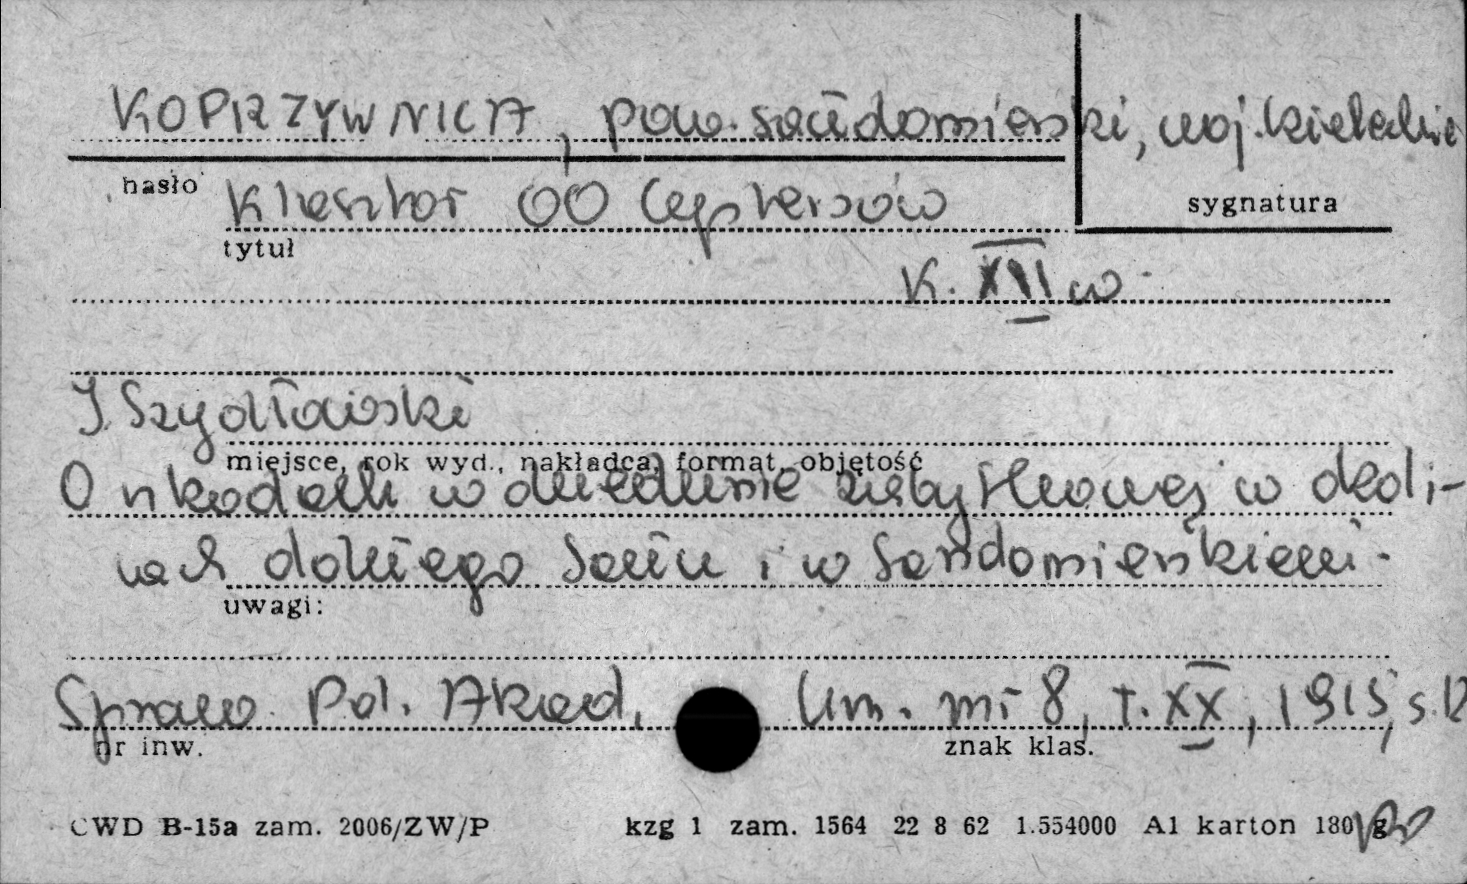 KOPRZYWNICA, pow. sandomierski, woj. kieleckie
hasło
Klasztor OO Cystersów
sygnatura
tytuł
K. XII w.
J. Szydłowski
miejsce, rok wyd., nakładca, format, objętość
O szkodach w dziedzinie zabytkowej w okoli-
cach dolnego Sanu i w Sandomierskiem.
uwagi:
Spraw. Pol. Akad. Um. nr 8, t. XX, 1915, s. 12
nr inw.
znak klas.
CWD B-15a zam. 2006/ZW/P kzg 1 zam. 1564 22 8 62 1.554000 A1 karton 180 g